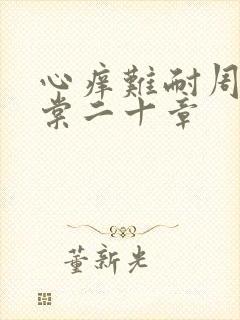 心痒難耐周
棠二十章
董新光